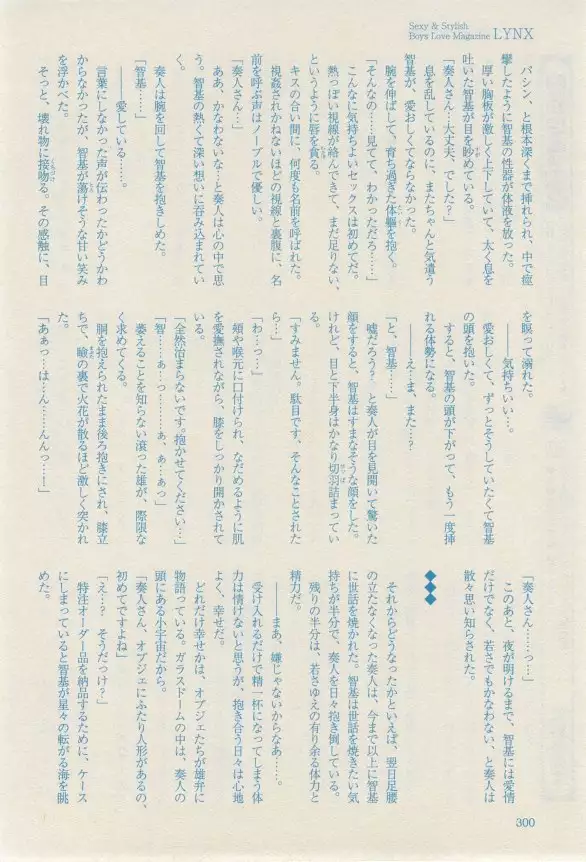 Sexy & Stylish
Boys Love Magazine LYNX
パシン、と根本深くまで挿れられ、中で痙
攣したように智基の性器が体液を放った。
厚い胸板が激しく上下していて、太く息を
吐いた智基が目を眇めている。
「奏人さん…大丈夫、でした？」
息を乱しているのに、まだちゃんと気遣う
智基が、愛おしくてならなかった。
腕を伸ばして、育ち過ぎた体軀を抱く。
「そんなの……見てて、わかっただろ……」
こんなに気持ちよいセックスは初めてだ。
熱っぽい視線が絡んできて、まだ足りない、
というように唇を貪る。
キスの合い間に、何度も名前を呼ばれた。
視姦されかねないほどの視線と裏腹に、名
前を呼ぶ声はノーブルで優しい。
「奏人さん…」
ああ、かなわないな…と奏人は心の中で思
う。智基の熱くて深い想いに呑み込まれてい
く。
奏人は腕を回して智基を抱きしめた。
「智基……」
――愛している……。
言葉にしなかった声が伝わったかどうかわ
からなかったが、智基が蕩けそうな甘い笑み
を浮かべた。
そっと、壊れ物に接吻る。その感触に、目
を瞑って溺れた。
――気持ちいい…。
愛おしくて、ずっとそうしていたくて智基
の頭を抱いた。
すると、智基の頭が下がって、もう一度挿
れる体勢になる。
――え…ま、また…？
「と、智基……」
嘘だろう？ と奏人が目を見開いて驚いた
顔をすると、智基はすまなそうな顔をした。
けれど、目と下半身はかなり切羽詰まってい
る。
「すみません。駄目です、そんなことされた
ら…」
「わ…っ…」
頬や喉元に口付けられ、なだめるように肌
を愛撫されながら、膝をしっかり開かされて
いる。
「全然治まらないです。抱かせてください…」
「智……ぁ…っ………ぁ、ぁ…ぁっ」
萎えることを知らない滾った雄が、際限な
く求めてくる。
胴を抱えられたまま後ろ抱きにされ、膝立
ちで、瞼の裏で火花が散るほど激しく突かれ
た。
「あぁっ…は…ん……んんっ…ー」
「奏人さん……っ…」
このあと、夜が明けるまで、智基には愛情
だけでなく、若さでもかなわない、と奏人は
散々思い知らされた。
◆◆◆
それからどうなったかといえば、翌日足腰
の立たなくなった奏人は、今まで以上に智基
に世話を焼かれた。智基は世話を焼きたい気
持ちが半分で、奏人を日々抱き倒している。
残りの半分は、若さゆえの有り余る体力と
精力だ。
――まあ、嫌じゃないからなあ……。
受け入れるだけで精一杯になってしまう体
力は情けないと思うが、抱き合う日々は心地
よく、幸せだ。
どれだけ幸せかは、オブジェたちが雄弁に
物語っている。ガラスドームの中は、奏人の
頭にある小宇宙だから。
「奏人さん、オブジェにふたり人形があるの、
初めてですよね」
「え…？ そうだっけ？」
特注オーダー品を納品するために、ケース
にしまっていると智基が星々の転がる海を眺
めた。
300